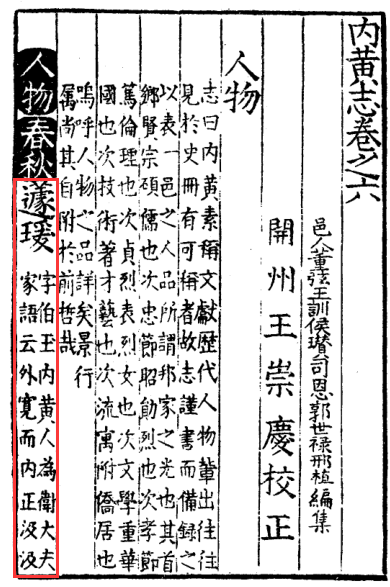 內黃志卷之六
邑人董弦王訓侯璡司恩郭世祿邢植編集
開州王崇慶校正
人物
志曰內黃素稱文獻歷代人物輩出往往
見於史冊有可稱者故志謹書而備錄之
以表一邑之人品所謂邦家之光也其首
鄉賢宗碩儒也次忠節昭勛烈也次孝節
篤倫理也次貞烈表烈女也次文學重華
國也次技術著才藝也次流寓附僑居也
嗚呼人物之品詳矣景行
厲尚其自附於前哲哉
人物春秋
蘧瑗
字伯玉內黃人為衛大夫
家語云外寬而內正汲汲